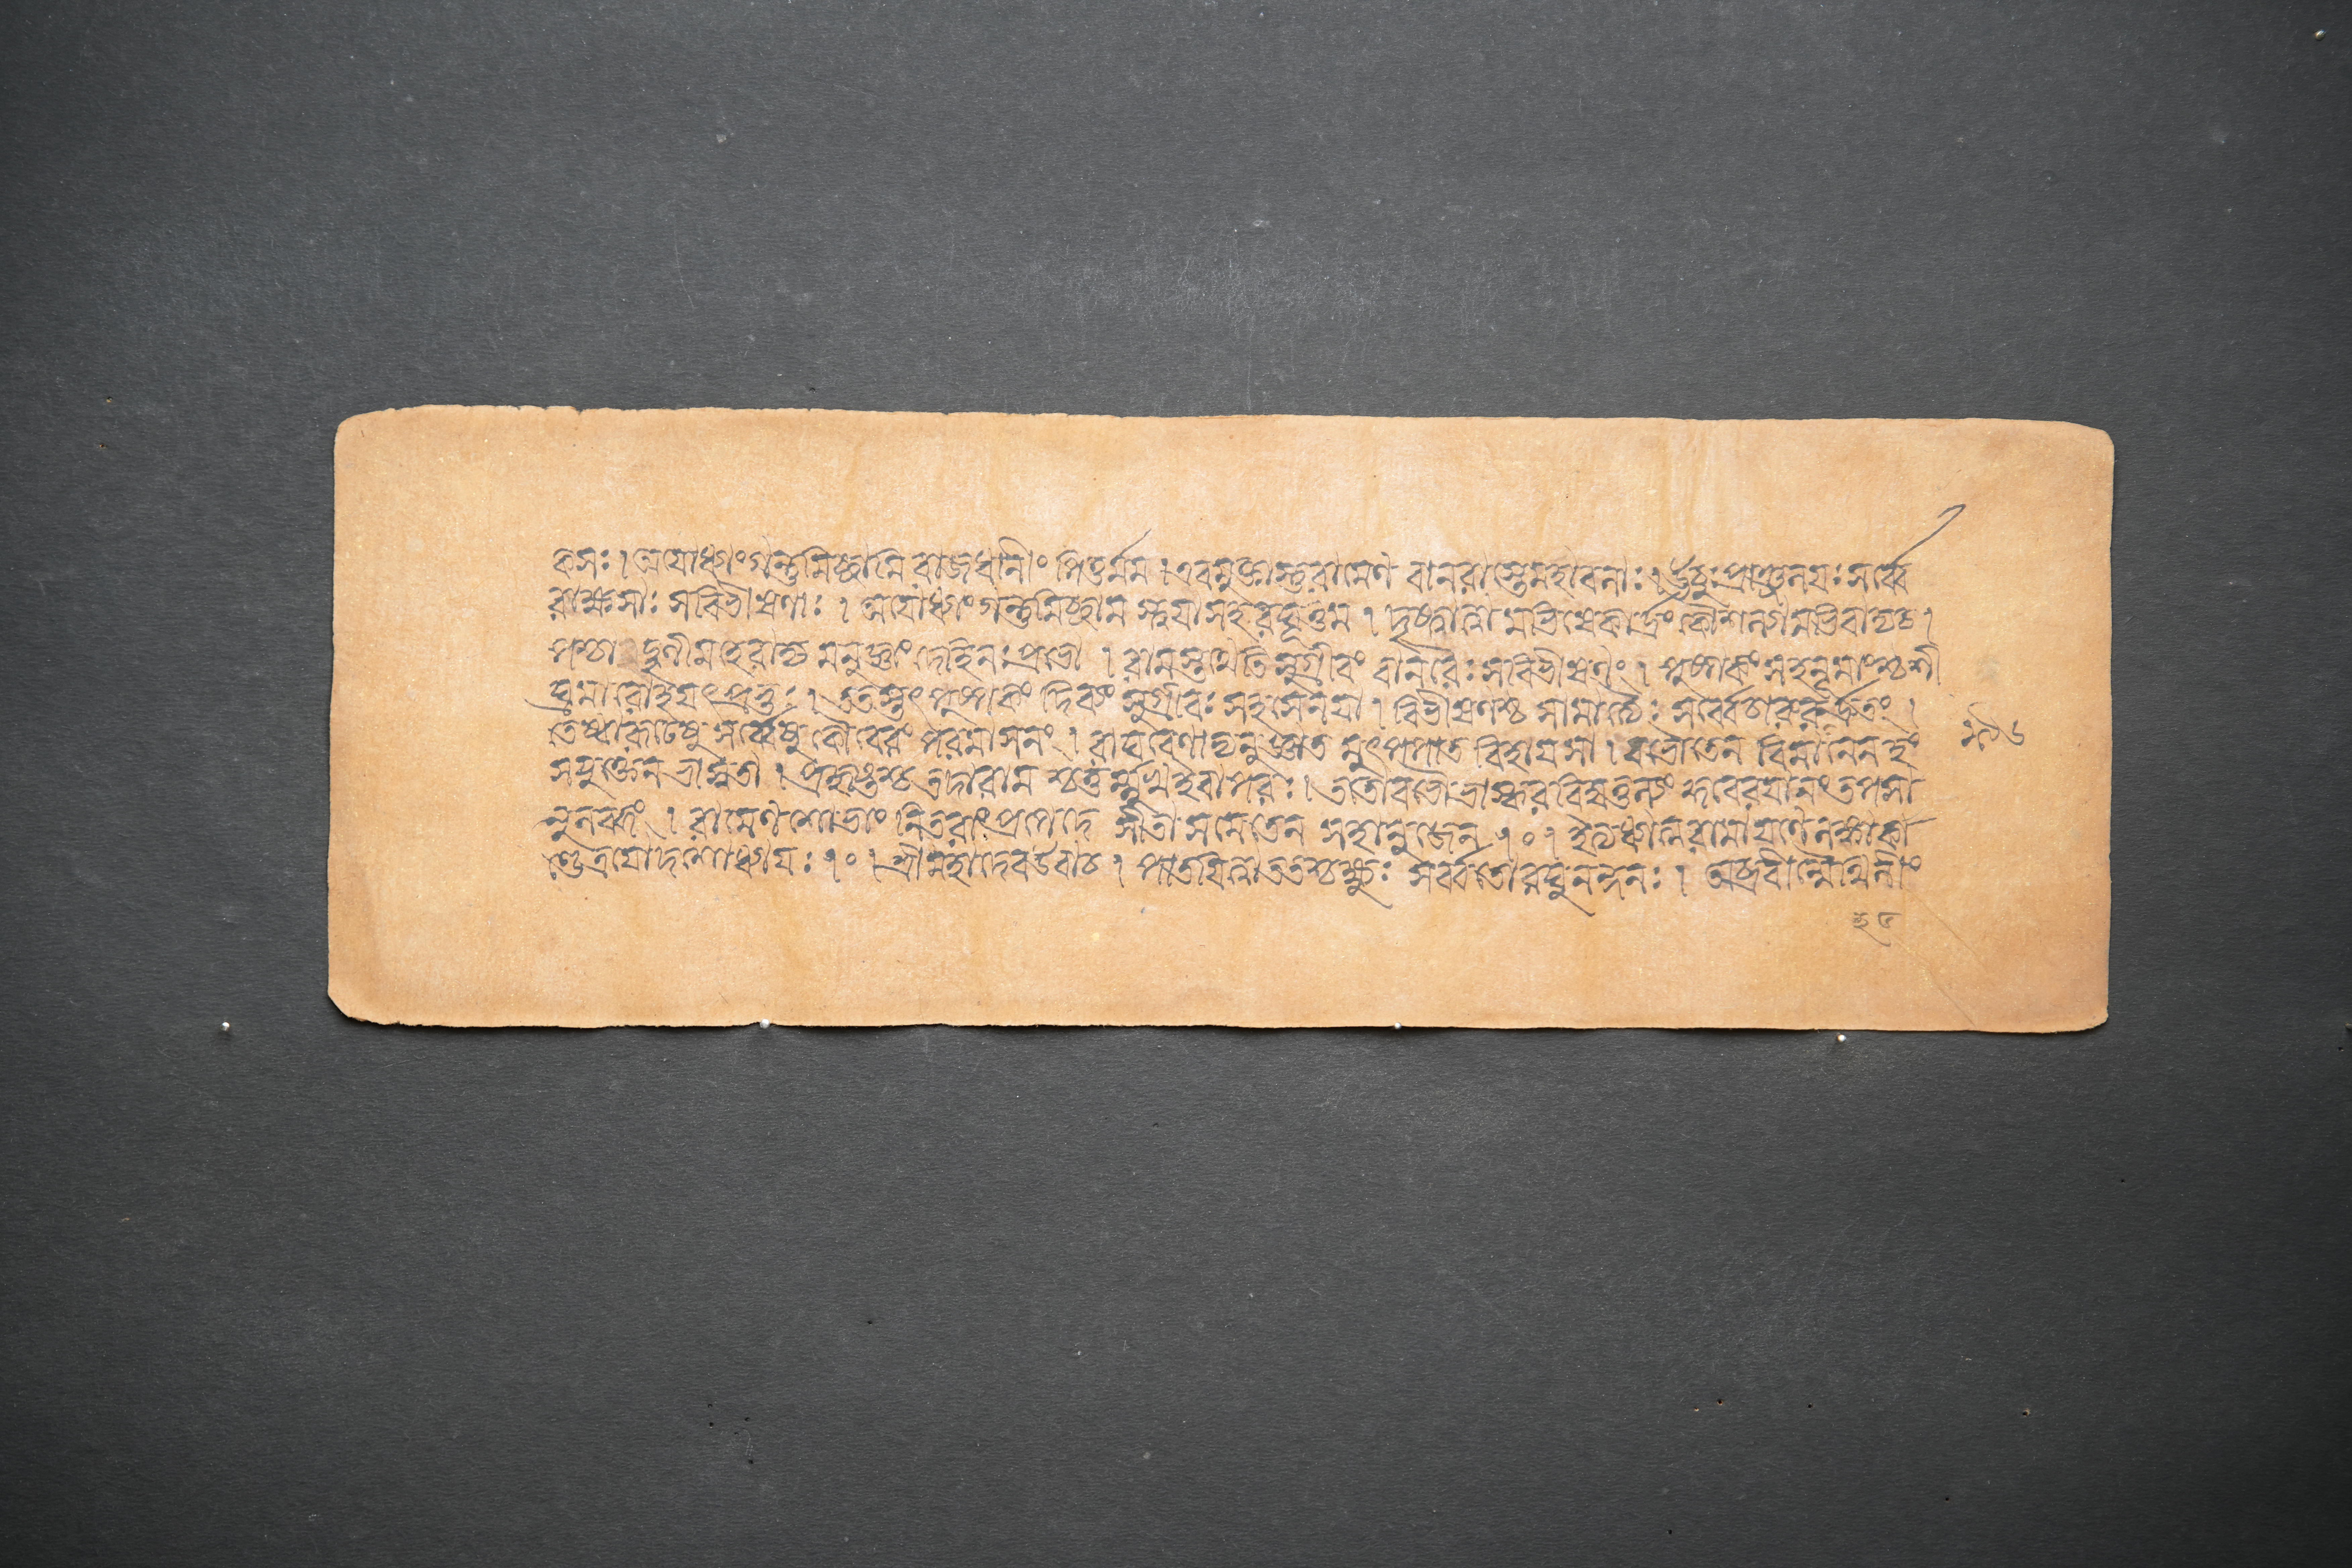 কসঃ । অযোধ্যাং গন্তুমিচ্ছামি রাজধানীং পিতুর্ম্মম । এবমুক্তাস্তু রামেণ বানরাস্তে মহাবলাঃ । ঊচুঃ প্রাঞ্জলযঃ সর্ব্বে
রাক্ষসাঃ সবিভীষণাঃ । অযোধ্যাং গন্তুমিচ্ছাম স্ত্বযা সহ রঘূত্তম । দৃষ্ট্বা ত্বামভিষেকার্দ্রং কৌশল্যামভিবাদ্য চ ।
পশ্চাদ্বৃণীমহে রাজ্য মনুজ্ঞাং দেহি নঃ প্রভো । রামস্তথেতি সুগ্রীবং বানরৈঃ সবিভীষণং । পুষ্পকং সহনূমাংশ্চ শী
ঘ্রমারোহযৎ প্রভুঃ । ততস্তৎ পুষ্পকং দিব্যং সুগ্রীবঃ সহসেনযা । বিভীষণশ্চ সামাত্যৈঃ সর্ব্বে চারুরুহুর্দ্রুতং ।
তেষ্বারূঢেষু সর্ব্বেষু কৌবেরং পরমাসনং । রাঘবেণাভ্যনুজ্ঞাত মুৎপপাত বিহাযসা । বভৌ তেন বিমানেন হং
সযুক্তেন ভাস্বতা । প্রহৃষ্টশ্চ তদা রাম শ্চতুর্ম্মুখ ইবাপরঃ । ততো বভৌ ভাস্করবিম্বতুল্যং কুবেরযানং তপসা
নুলব্ধং । রামেণ শোভাং নিতরাং প্রপেদে সীতা সমেতেন সহানুজেন ।০। ইত্যধ্যাত্মরামাযণে লঙ্কাকা
ণ্ডে ত্রযোদশোধ্যাযঃ ।০। শ্রীমহাদেব উবাচ । পাতযিত্বা ততশ্চক্ষুঃ সর্ব্বতো রঘুনন্দনঃ । অব্রবীন্মৈথিলীং